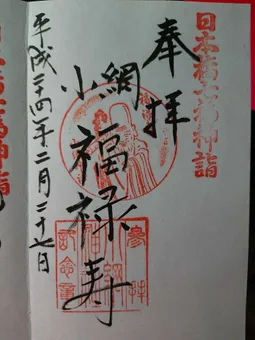 日本橋七福神詣
奉拝
小網
福禄寿
平成二十四年二月二十七日